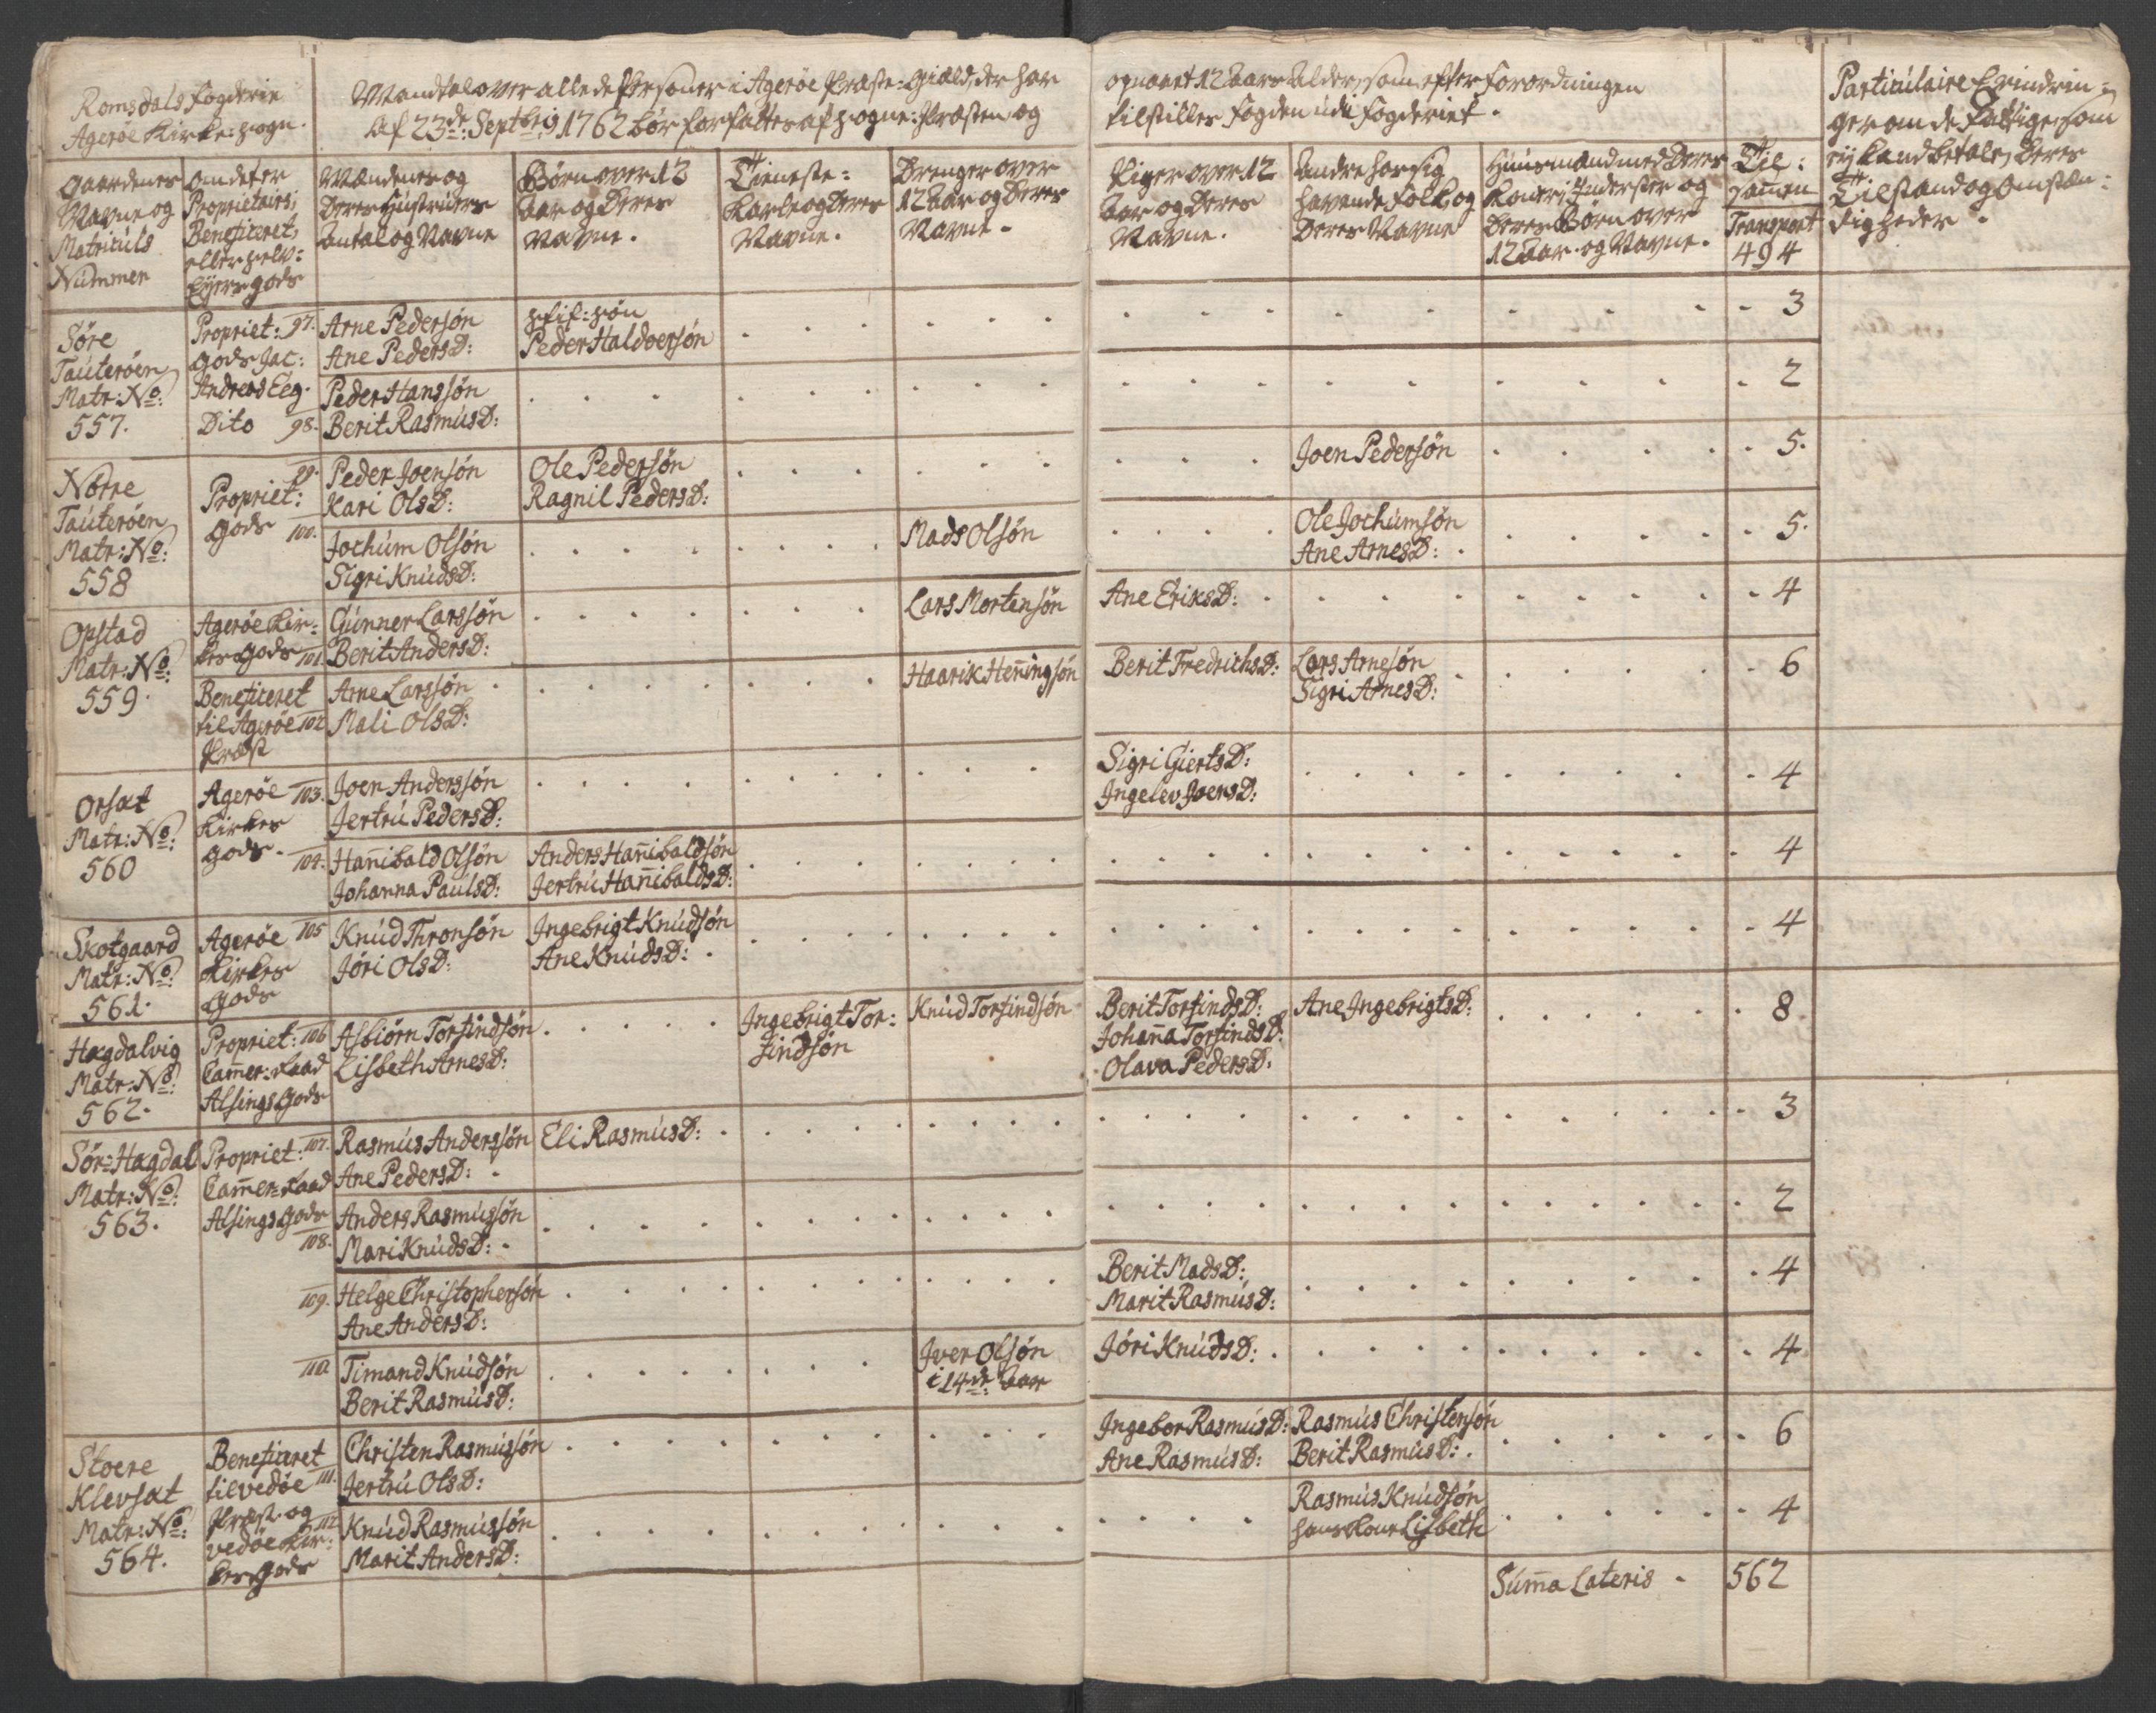 Romsdals Fogderie
Agerøe Kirke-Sogn.
Mandtal over alle de Personer i Agerøe Præste-Giæld, der har
af 23de Septbris 1762 bør forfattes af Sogne-Præsten og
opnaaet 12 Aars Alder, som efter Forordningen
tilstilles Fogden udi Fogderiet.
Particulaire Erindrin-
ger om de Fattige, som
ej kand betale, Deres
Tilstand og Omstæn-
digheder
Gaardenes
Navne og
Matriculs
Nummer
Om det er
Proprietairs,
Beneficeret,
eller Selv-
Eyers Gods
Mændenes og
Deres Hustruers
Antal og Navne
Børn over 12
Aar og Deres
Navne.
Tieneste-
Karle og Deres
Navne.
Drenger over
12 Aar og Deres
Navne.
Piger over 12
Aar og Deres
Navne.
Andre hos sig
havende Folk og
Deres Navne
Huusmænd med Deres
Koner, Inderster og
Deres Børn over
12 Aar og Navne.
Til-
sam̄en
Transport
494
Søre
Tauterøen
Matr: No:
557.
Propriet: 97.
Gods Jac:
Andreas Eeg.
Arne Pedersøn
Ane PedersD:
Stif-Søn
Peder Haldoersøn
3
Dito 98.
Peder Hanssøn
Berit RasmusD:
2
Nørre
Tauterøen
Matr: No:
558
99.
Propriet:
Gods
Peder Joensøn
Kari OlsD:
Ole Pedersøn
Ragnil PedersD:
Joen Pedersøn
5.
100.
Jochum Olsøn
Sigri KnudsD:
Mads Olsøn
Ole Jochumsøn
Ane ArnesD:
5.
Opstad
Matr: No:
559.
Agerøe Kir-
kes Gods 101.
Gunner Larssøn
Berit AndersD:
Lars Mortensøn
Ane EriksD:
4
Beneficeret
til Agerøe 102
Præst
Arne Larssøn
Mali OlsD:
Haarik Hen̄ingsøn
Berit FredrichsD:
Lars Arnesøn
Sigri ArnesD:
6
Orsæt
Matr: No:
560
Agerøe 103.
Kirkes
Gods.
Joen Anderssøn
Jertru PedersD:
Sigri GiertsD:
Ingelev JoensD:
4
104.
Han̄ibald Olsøn
Johanna PaulsD:
Anders Han̄ibaldsøn
Jertru Han̄ibaldsD:
4
Skotgaard
Matr: No:
561.
Agerøe 105
Kirkes
Gods
Knud Thronsøn
Jóri OlsD:
Ingebrigt Knudsøn
Ane KnudsD:
4
Hagdalvig
Matr: No:
562.
Propriet: 106
Cam̄er-Raad
Alsings Gods
Asbiørn Torfindsøn
Lisbeth ArnesD:
Ingebrigt Tor-
findsøn
Knud Torfindsøn
Berit TorfindsD:
Johan̄a TorfindsD:
Olava PedersD:
Ane IngebrigtsD:
8
Sør-Hagdal
Matr: No:
563.
Propriet: 107.
Cam̄er-Raad
Alsings Gods
Rasmus Anderssøn
Ane PedersD:
Eli RasmusD:
3
108.
Anders Rasmusøn
Mari KnudsD:
2
109.
Helge Christophersøn
Ane AndersD:
Berit MadsD:
Marit RasmusD:
4
110
Timand Knudsøn
Berit RasmusD:
Iver Olsøn
i 14de Aar
Jóri KnudsD:
4
Stoere
Klevsæt
Matr: No:
564.
Beneficeret
til Vedøe 111.
Præst og
Christen Rasmusøn
Jertru OlsD:
Ingebor RasmusD:
Ane RasmusD:
Rasmus Christensøn
Berit RasmusD:
6
112
Vedøe Kir-
kes Gods
Knud Rasmusøn
Marit AndersD:
Rasmus Knudsøn
hans Kone Lisbeth
4
Sum̄a Lateris
562